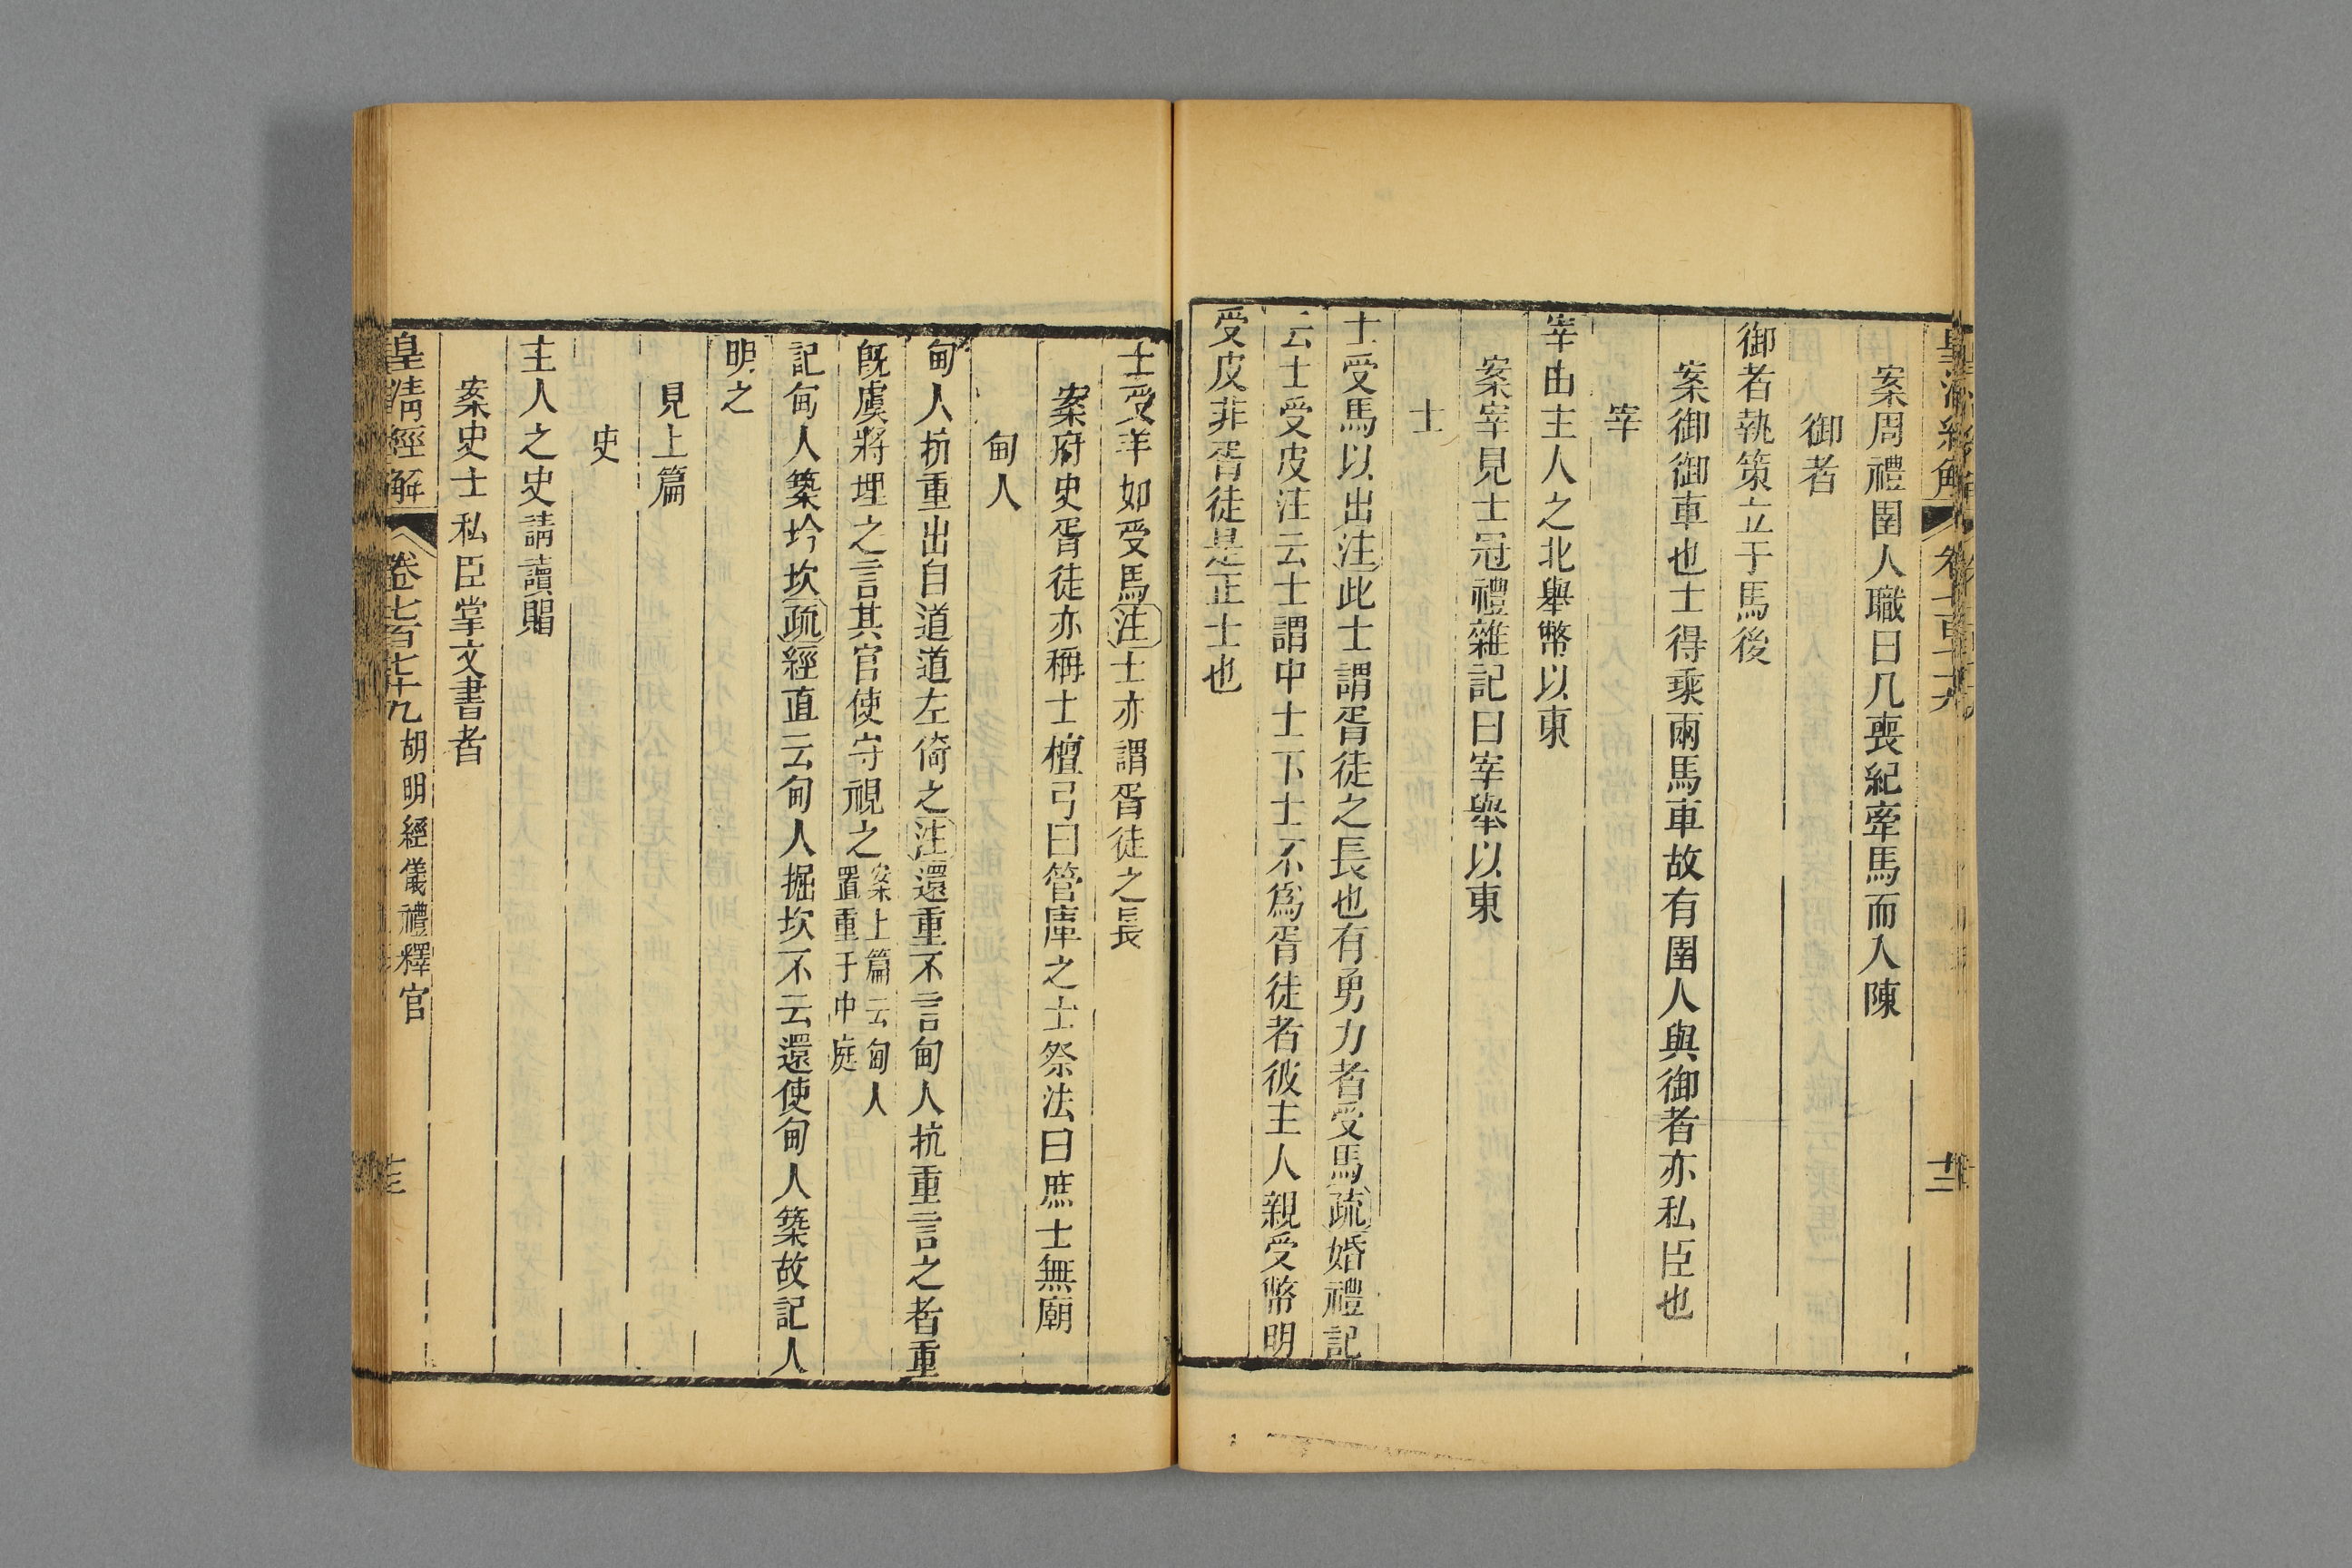 皇清經解
卷七百七十九
十二
案周禮圉人職曰凡喪紀牽馬而入陳
御者
御者執策立于馬後
案御御車也士得乘兩馬車故有圉人與御者亦私臣也
宰
宰由主人之北舉幣以東
案宰見士冠禮雜記曰宰舉以東
士
士受馬以出注此士謂胥徒之長也有勇力者受馬疏婚禮記
云士受皮注云士謂中士下士不爲胥徒者彼主人親受幣明
受皮非胥徒是正士也
士受羊如受馬注士亦謂胥徒之長
案府史胥徒亦稱士檀弓曰管庫之士祭法曰庶士無廟
甸人
甸人抗重出自道道左倚之注還重不言甸人抗重言之者重
旣虞將埋之言其官使守視之案上篇云甸人置重于中庭
記甸人築坅坎疏經直云甸人掘坎不云還使甸人築故記人
明之
見上篇
史
主人之史請讀賵
案史士私臣掌文書者
皇清經解
卷七百七十九
胡明經儀禮釋官
十三